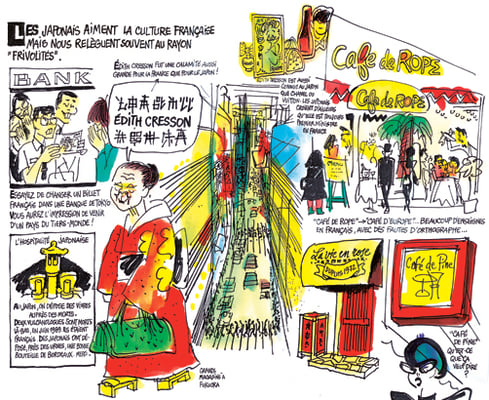 LES JAPONAIS AIMENT LA CULTURE FRANÇAISE
MAIS NOUS RELÈGUENT SOUVENT AU RAYON
"FRIVOLITÉS".
BANK
ÉDITH CRESSON FUT UNE CALAMITÉ AUSSI
GRANDE POUR LA FRANCE QUE POUR LE JAPON!
ÉDITH
CRESSON
ÉDITH CRESSON EST AUSSI
CONNUE AU JAPON
QUE CHANEL OU
VUITTON. LES JAPONAIS
CROIENT D'AILLEURS
QU'ELLE EST TOUJOURS
PREMIER MINISTRE
EN FRANCE
Café de ROPE
Café de ROPE
MENU
"CAFÉ DE ROPE" → "CAFÉ D'EUROPE"... BEAUCOUP D'ENSEIGNES
EN FRANÇAIS, AVEC DES FAUTES D'ORTHOGRAPHE...
ESSAYEZ DE CHANGER UN BILLET
FRANÇAIS DANS UNE BANQUE DE TOKYO
VOUS AUREZ L'IMPRESSION DE VENIR
D'UN PAYS DU TIERS-MONDE!
L'HOSPITALITÉ JAPONAISE
AU JAPON, ON DÉPOSE DES VIVRES
AUPRÈS DES MORTS.
DEUX VULCANOLOGUES SONT MORTS
LÀ-BAS, EN JUIN 1991. ILS ÉTAIENT
FRANÇAIS. DES JAPONAIS ONT DÉ-
POSÉ, PRÈS DES URNES, UNE BONNE
BOUTEILLE DE BORDEAUX. MERCI.
GRANDS
MAGASINS À
FUKUOKA
La vie en rose
DEPUIS 1972
Café de Pine
"CAFÉ
DE PINE"
QU'EST-CE
QUE ÇA
VEUT DIRE
?